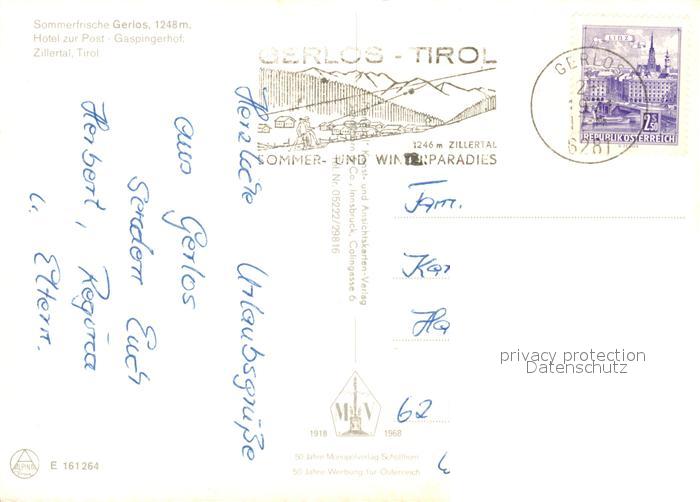 Sommerfrische Gerlos, 1248 m.
Hotel zur Post - Gaspingerhof;
Zillertal, Tirol
GERLOS - TIROL
1246 m ZILLERTAL
SOMMER- UND WINTERPARADIES
GERLOS
6281
LINZ
2.50
REPUBLIK ÖSTERREICH
Herzliche Urlaubsgrüße
aus Gerlos
Senden Euch
Herbert, Regina
u. Eltern.
Kunst- und Ansichtskarten-Verlag
Co., Innsbruck, Colingasse 6
Nr. 05222/29816
Fam.
Kar
Ha
62
privacy protection
Datenschutz
M V
1918 1968
50 Jahre Monopolverlag Schöllhorn
50 Jahre Werbung für Österreich
ALPINA
E 161264